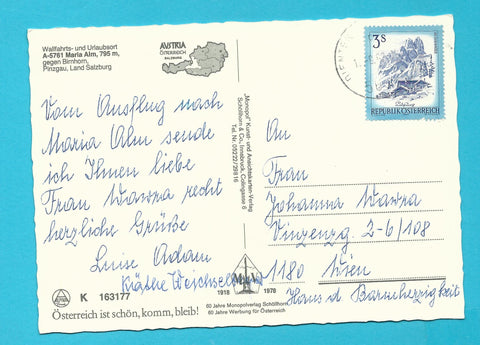 Wallfahrts- und Urlaubsort
A-5761 Maria Alm, 795 m,
gegen Birnhorn,
Pinzgau, Land Salzburg
AUSTRIA
ÖSTERREICH
SALZBURG
Vom Ausflug nach
Maria Alm sende
ich Ihnen liebe
Frau Wawra recht
herzliche Grüße
Luise Adam
Käthe
K 163177
Österreich ist schön, komm, bleib!
"Monopol" Kunst- und Ansichtskarten-Verlag
Schöllhorn & Co., Innsbruck, Colingasse 6
Tel. Nr. 05222/25816
1918 1978
60 Jahre Monopolverlag Schöllhorn
60 Jahre Werbung für Österreich
3S
REPUBLIK ÖSTERREICH
An
Frau
Johanna Wawra
Vinzenzg. 2-6/108
1180 Wien
Haus d Barmherzigkeit